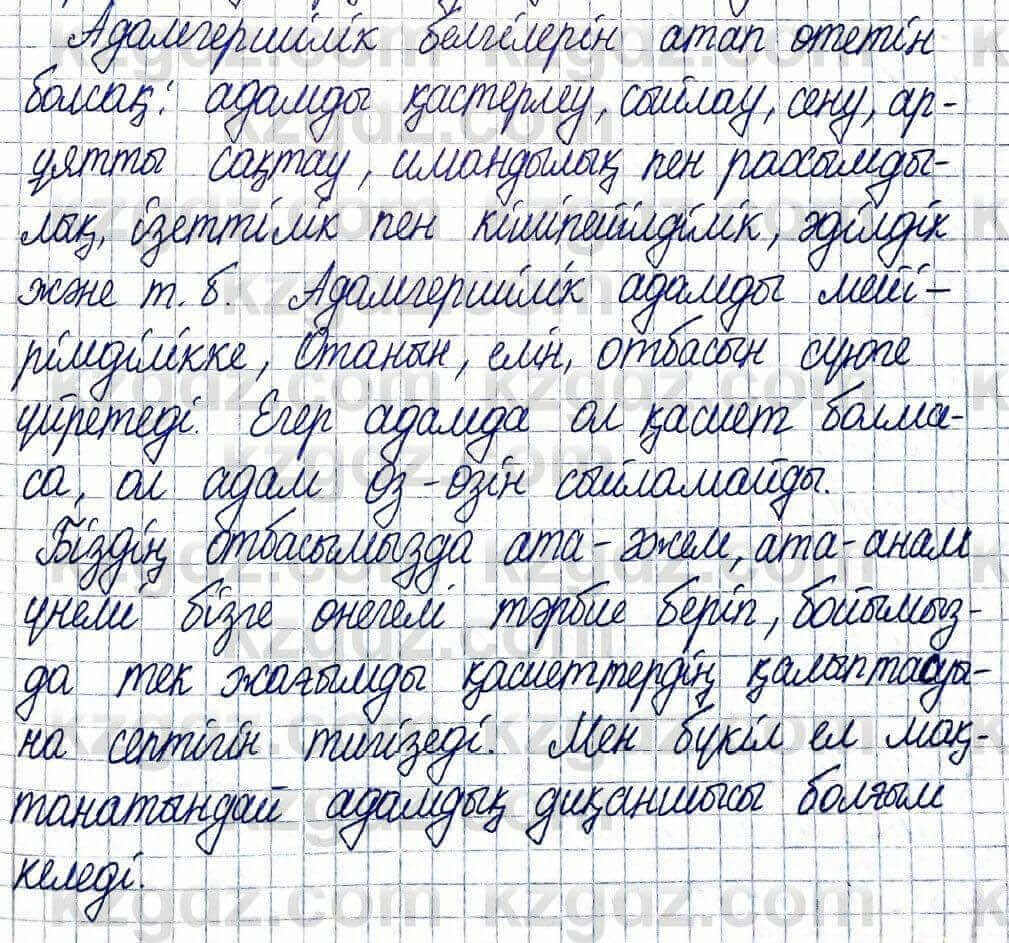 Адамгершілік белгілерін атап өтетін
болсақ: адамды қастерлеу, сыйлау, сену, ар-
ұятты сақтау, имандылық пен рахымды-
лық, ізеттілік пен кішіпейілділік, әділдік
және т. б. Адамгершілік адамды мейі-
рімділікке, Отанын, елін, отбасын сүюге
үйретеді. Егер адамда ол қасиет болма-
са, ол адам өз-өзін сыйламайды.
Біздің отбасымызда ата-әжем, ата-анам
үнемі бізге өнегелі тәрбие беріп, бойымыз-
да тек жағымды қасиеттердің қалыптасуы-
на септігін тигізеді. Мен бүкіл ел мақ-
танатындай адамдық диқаншысы болғым
келеді.